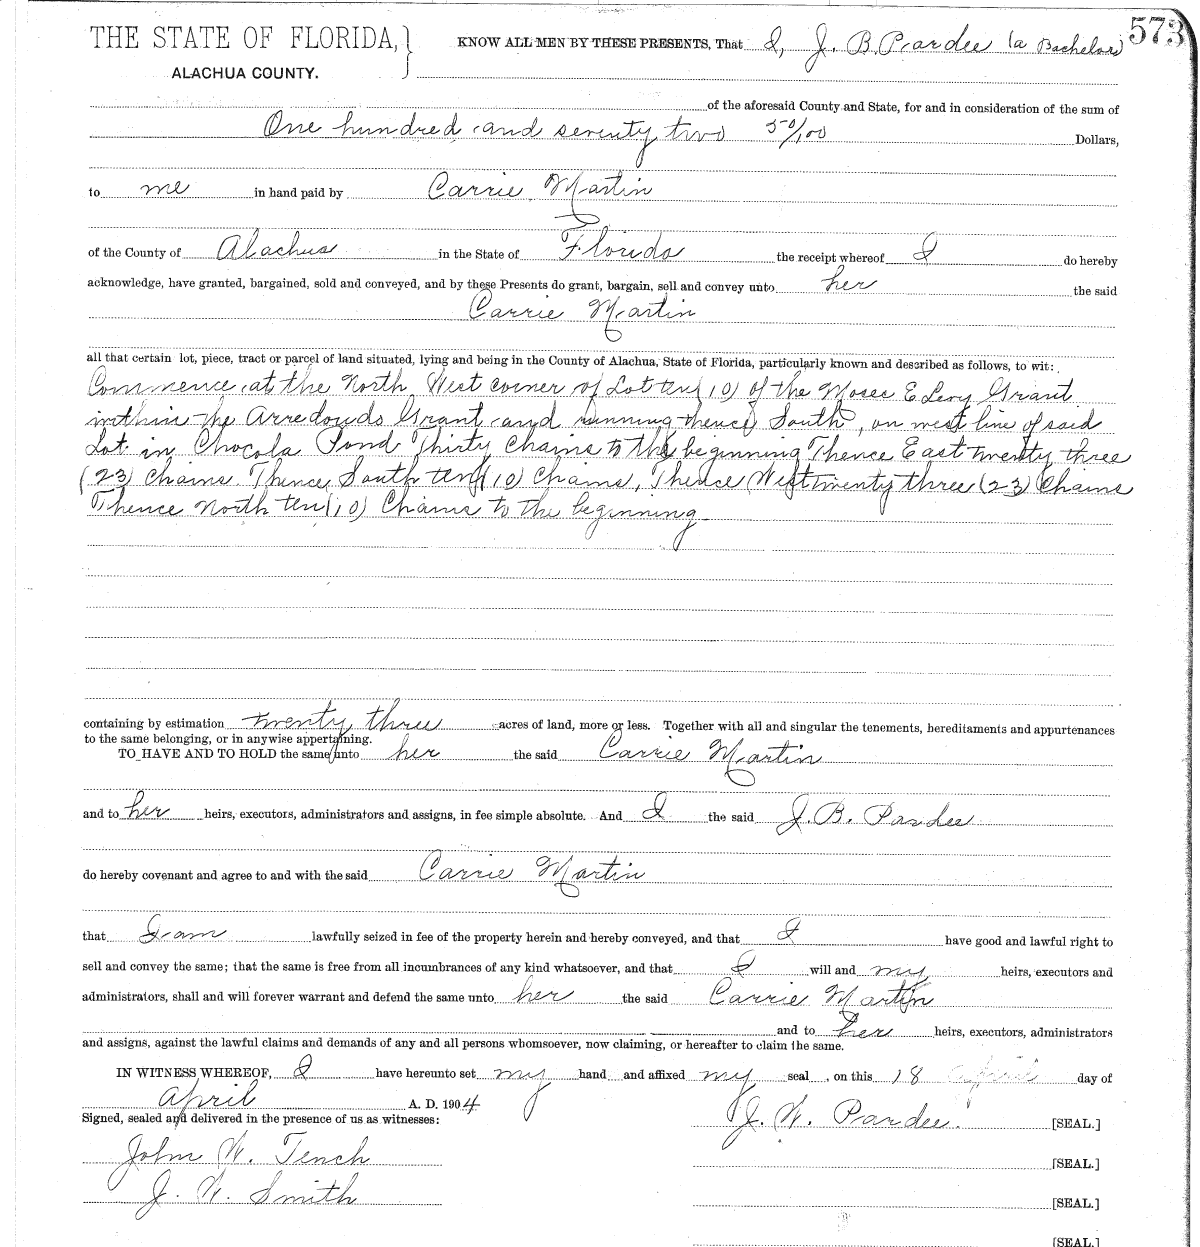 573
THE STATE OF FLORIDA,
ALACHUA COUNTY.
KNOW ALL MEN BY THESE PRESENTS, That I, J. B. Pardee (a Bachelor)
of the aforesaid County and State, for and in consideration of the sum of
One hundred and seventy two 50/100 Dollars,
to me in hand paid by Carrie Martin
of the County of Alachua in the State of Florida the receipt whereof I do hereby
acknowledge, have granted, bargained, sold and conveyed, and by these Presents do grant, bargain, sell and convey unto her the said
Carrie Martin
all that certain lot, piece, tract or parcel of land situated, lying and being in the County of Alachua, State of Florida, particularly known and described as follows, to wit:
Commence at the North West corner of Lot ten (10) of the Moses E Levy Grant
within the Arredondo Grant and running thence South, on west line of said
Lot in Chocola Pond Thirty Chains to the beginning Thence East twenty three
(23) Chains. Thence South ten (10) Chains, Thence West twenty three (23) Chains
Thence North ten (10) Chains to the beginning
containing by estimation twenty three acres of land, more or less. Together with all and singular the tenements, hereditaments and appurtenances
to the same belonging, or in anywise appertaining.
TO HAVE AND TO HOLD the same unto her the said Carrie Martin
and to her heirs, executors, administrators and assigns, in fee simple absolute. And I the said J. B. Pardee
do hereby covenant and agree to and with the said Carrie Martin
that I am lawfully seized in fee of the property herein and hereby conveyed, and that I have good and lawful right to
sell and convey the same; that the same is free from all incumbrances of any kind whatsoever, and that I will and my heirs, executors and
administrators, shall and will forever warrant and defend the same unto her the said Carrie Martin
and to her heirs, executors, administrators
and assigns, against the lawful claims and demands of any and all persons whomsoever, now claiming, or hereafter to claim the same.
IN WITNESS WHEREOF, I have hereunto set my hand and affixed my seal, on this 18 April day of
April A. D. 1904
Signed, sealed and delivered in the presence of us as witnesses:
J. W. Pardee. [SEAL.]
John W. Tench
[SEAL.]
J. W. Smith
[SEAL.]
[SEAL.]